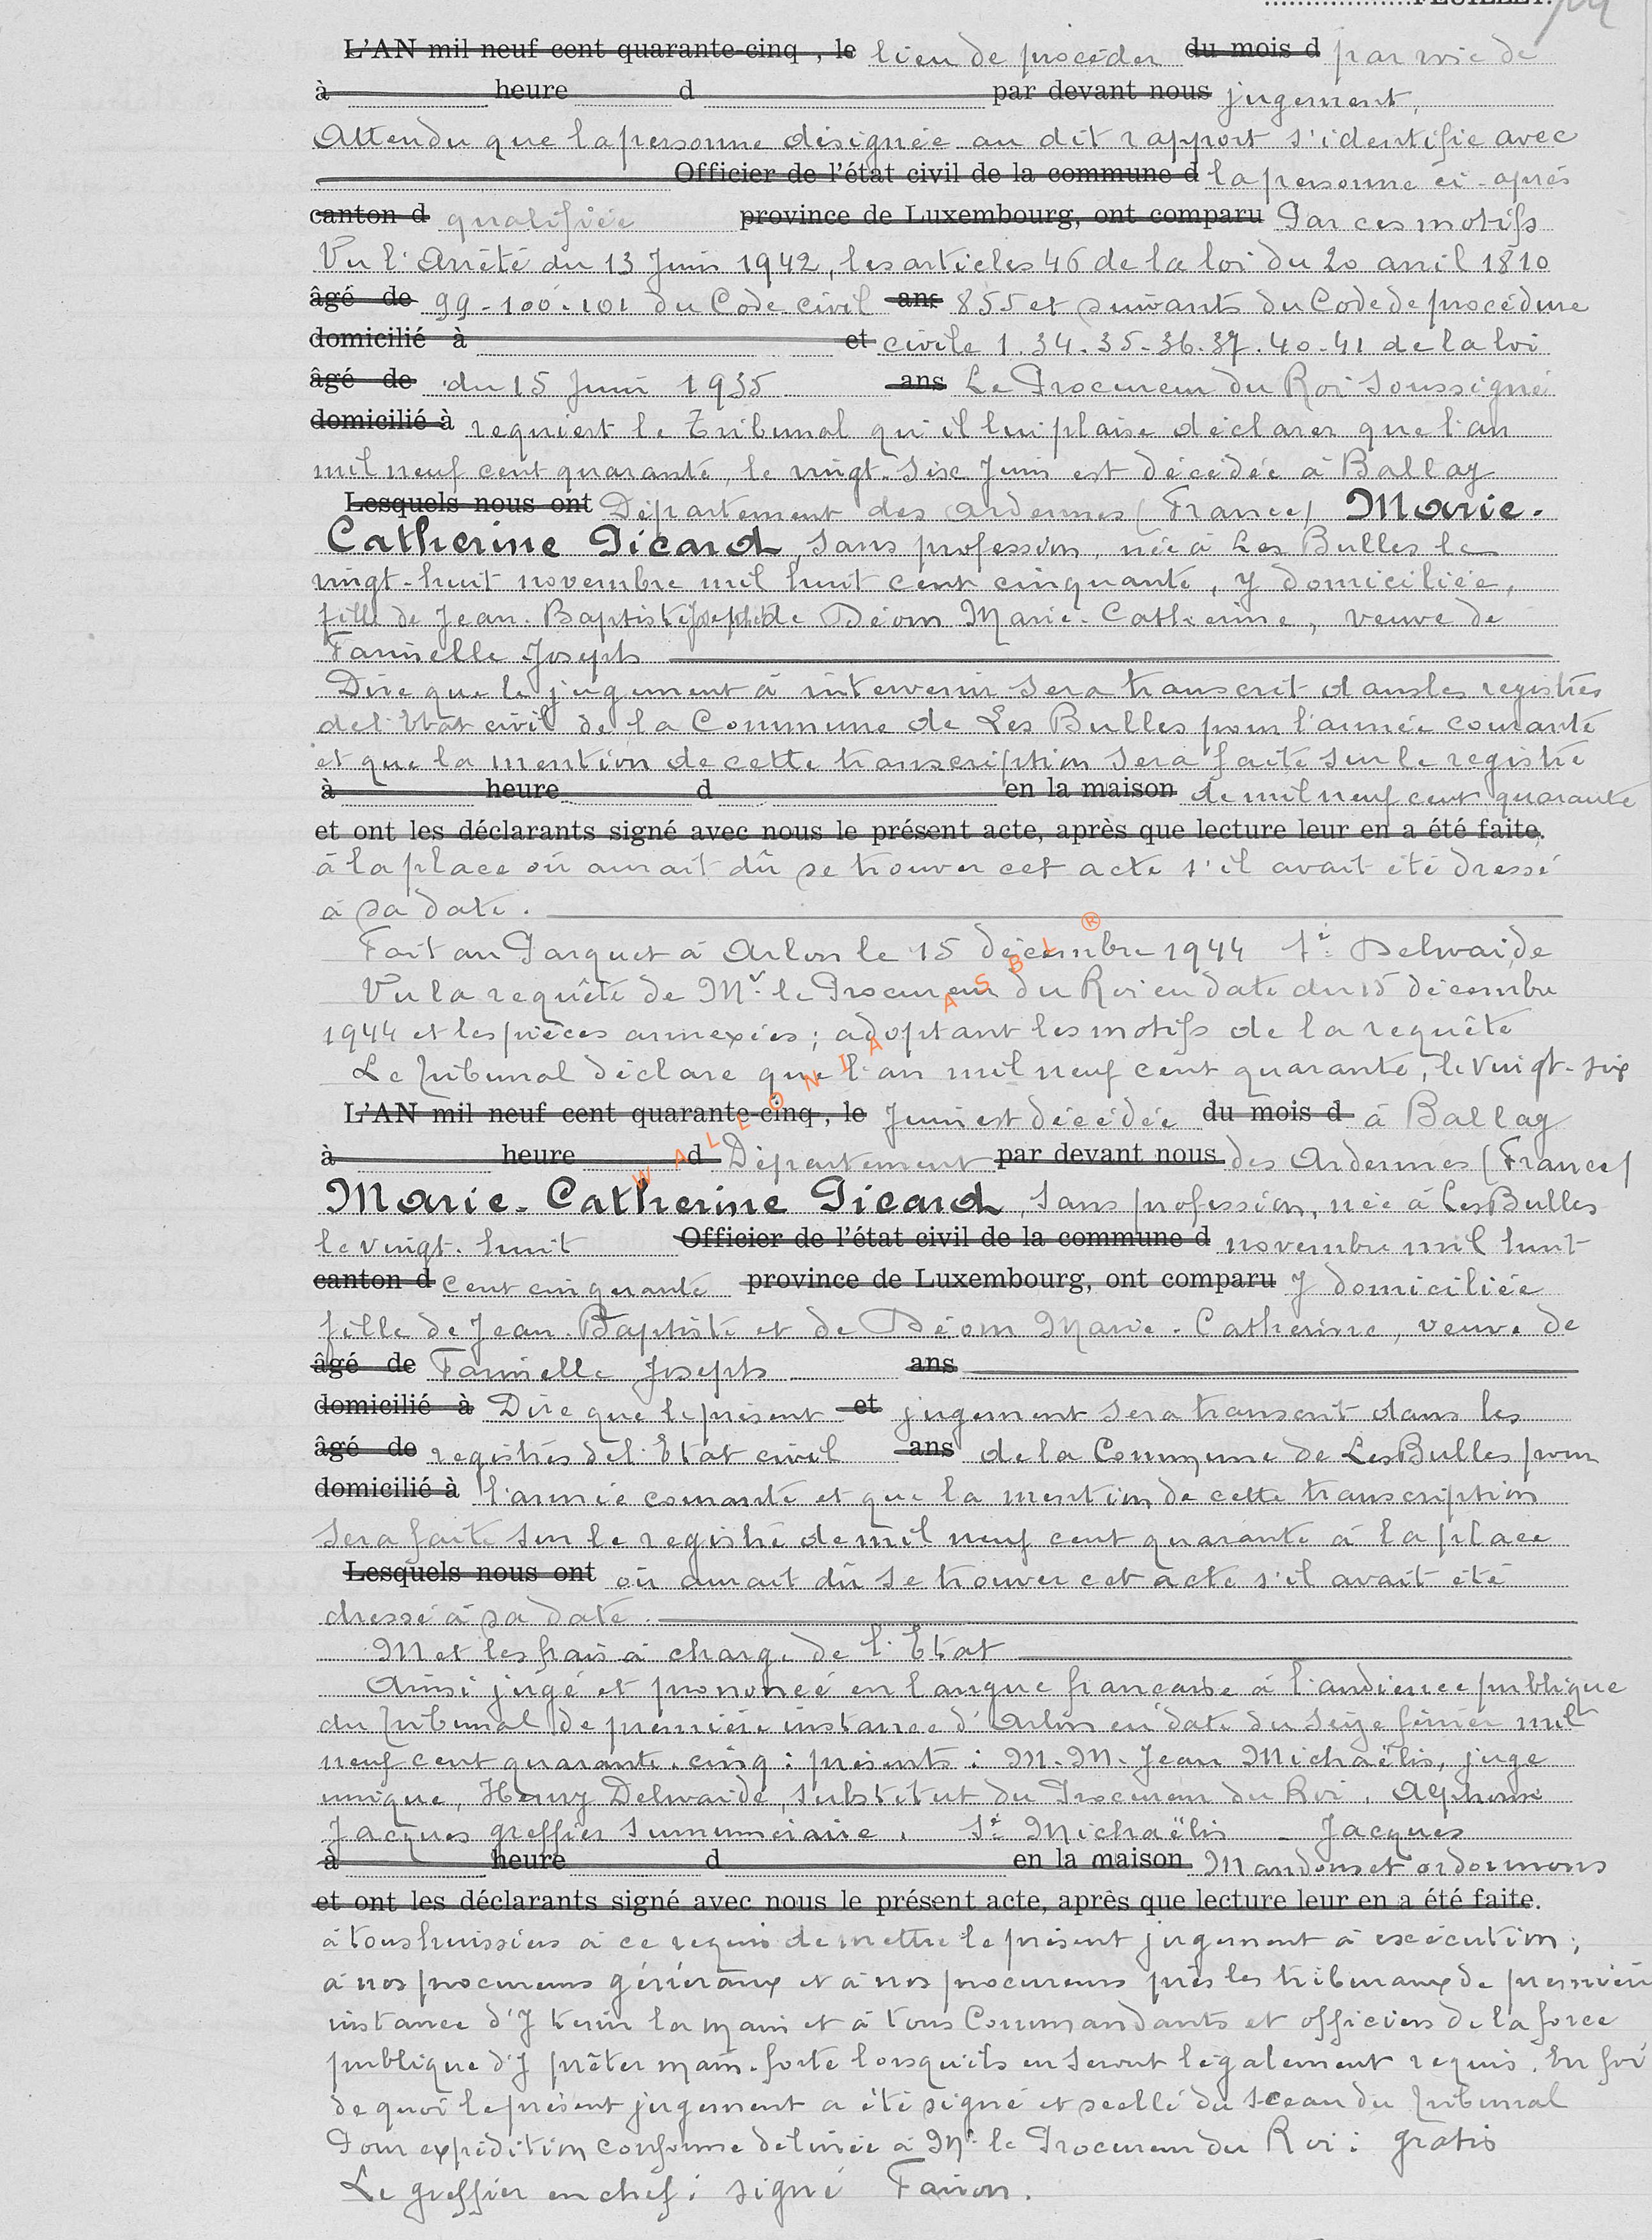 FEUILLET.
L'AN mil neuf cent quarante-cinq, le lieu de procéder du mois d par voie de
à heure d par devant nous jugement,
Attendu que la personne désignée au dit rapport s'identifie avec
Officier de l'état civil de la commune d la personne ci-après
canton d qualifiée province de Luxembourg, ont comparu Par ces motifs
Vu l'Arrêté du 13 Juin 1942, les articles 46 de la loi du 20 avril 1810
âgé de 99-100-101 du Code civil ans 855 et suivants du Code de procédure
domicilié à et civile 1.34.35-36.37.40-41 de la loi
âgé de du 15 Juin 1935 ans Le Procureur du Roi soussigné
domicilié à requiert le Tribunal qu'il lui plaise déclarer que l'an
mil neuf cent quarante, le vingt-six Juin est décédée à Ballay
Lesquels nous ont Département des Ardennes (France) Marie-
Catherine Picard, sans profession, née à Les Bulles le
vingt-huit novembre mil huit cent cinquante, y domiciliée,
fille de Jean-Baptiste Joseph et de Déom Marie-Catherine, veuve de
Farinelle Joseph
Dire que le jugement à intervenir sera transcrit dans les registres
de l'Etat civil de la Commune de Les Bulles pour l'année courante
et que la mention de cette transcription sera faite sur le registre
à heure d en la maison de mil neuf cent quarante
et ont les déclarants signé avec nous le présent acte, après que lecture leur en a été faite.
à la place où aurait dû se trouver cet acte s'il avait été dressé
à sa date.
Fait au Parquet à Arlon le 15 décembre 1944 Sé: Delwaide
Vu la requête de Mr. le Procureur du Roi en date du 15 décembre
1944 et les pièces annexées; adoptant les motifs de la requête
Le Tribunal déclare que l'an mil neuf cent quarante, le vingt-six
L'AN mil neuf cent quarante-cinq, le Juin est décédée du mois d à Ballay
à heure d Département par devant nous des Ardennes (France)
Marie-Catherine Picard, sans profession, née à Les Bulles
le vingt-huit Officier de l'état civil de la commune d novembre mil huit
canton d cent cinquante province de Luxembourg, ont comparu y domiciliée
fille de Jean-Baptiste et de Déom Marie-Catherine, veuve de
âgé de Farinelle Joseph ans
domicilié à Dire que le présent et jugement sera transcrit dans les
âgé de registres de l'Etat civil ans de la Commune de Les Bulles pour
domicilié à l'année courante et que la mention de cette transcription
sera faite sur le registre de mil neuf cent quarante à la place
Lesquels nous ont où aurait dû se trouver cet acte s'il avait été
dressé à sa date.
Met les frais à charge de l'Etat
Ainsi jugé et prononcé en langue française à l'audience publique
du Tribunal de première instance d'Arlon en date du seize février mil
neuf cent quarante-cinq: présents: M.M. Jean Michaëlis, juge
unique, Henry Delwaide, substitut du Procureur du Roi, Alphonse
Jacques greffier surnuméraire. Sé Michaëlis - Jacques
à heure d en la maison Mandons et ordonnons
et ont les déclarants signé avec nous le présent acte, après que lecture leur en a été faite.
à tous huissiers à ce requis de mettre le présent jugement à exécution;
à nos procureurs généraux et à nos procureurs près les tribunaux de première
instance d'y tenir la main et à tous Commandants et officiers de la force
publique d'y prêter main-forte lorsqu'ils en seront légalement requis. En foi
de quoi le présent jugement a été signé et scellé du sceau du Tribunal
Pour expédition conforme délivrée à Mr. le Procureur du Roi: gratis
Le greffier en chef: signé Farion.
WALLONIA ASBL ®